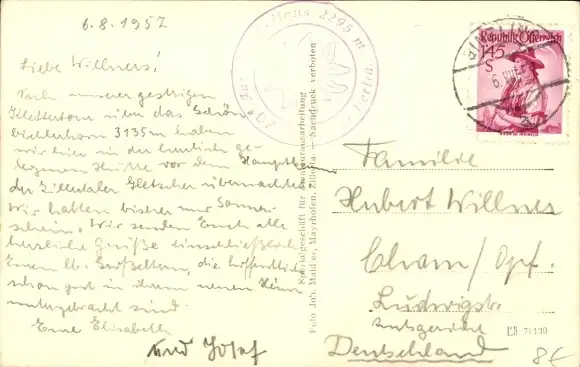 6.8.1957
Liebe Willners!
Nach unserer gestrigen
Klettertour über das Schön-
bichlerhorn 3135 m haben
wir hier in der herrlich ge-
legenen Hütte vor dem Hauptkamm
der Zillertaler Gletscher übernachtet.
Wir hatten bisher nur Sonnen-
schein. Wir senden Euch alle
herzliche Grüße einschließlich
Euren lb. Großeltern, die hoffentlich
schon gut in ihrem neuen Heim
untergebracht sind.
Eure Elisabeth
und Josef
Haus 2295 m
Berlin
Spezialgeschäft für Amateurausarbeitung
Foto Joh. Mayrhofen, Zillertal — Nachdruck verboten
Republik Österreich
145
S
6.VIII
Familie
Hubert Willner
Cham/Opf.
Ludwigstr.
Amtsgericht
Deutschland
8€